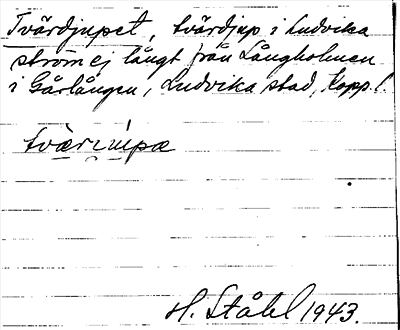 Tvärdjupet, tvärdjup i Ludvika
ström ej långt från Långholmen
i Gårlången, Ludvika stad, Kopp. l.
H. Ståhl 1943.